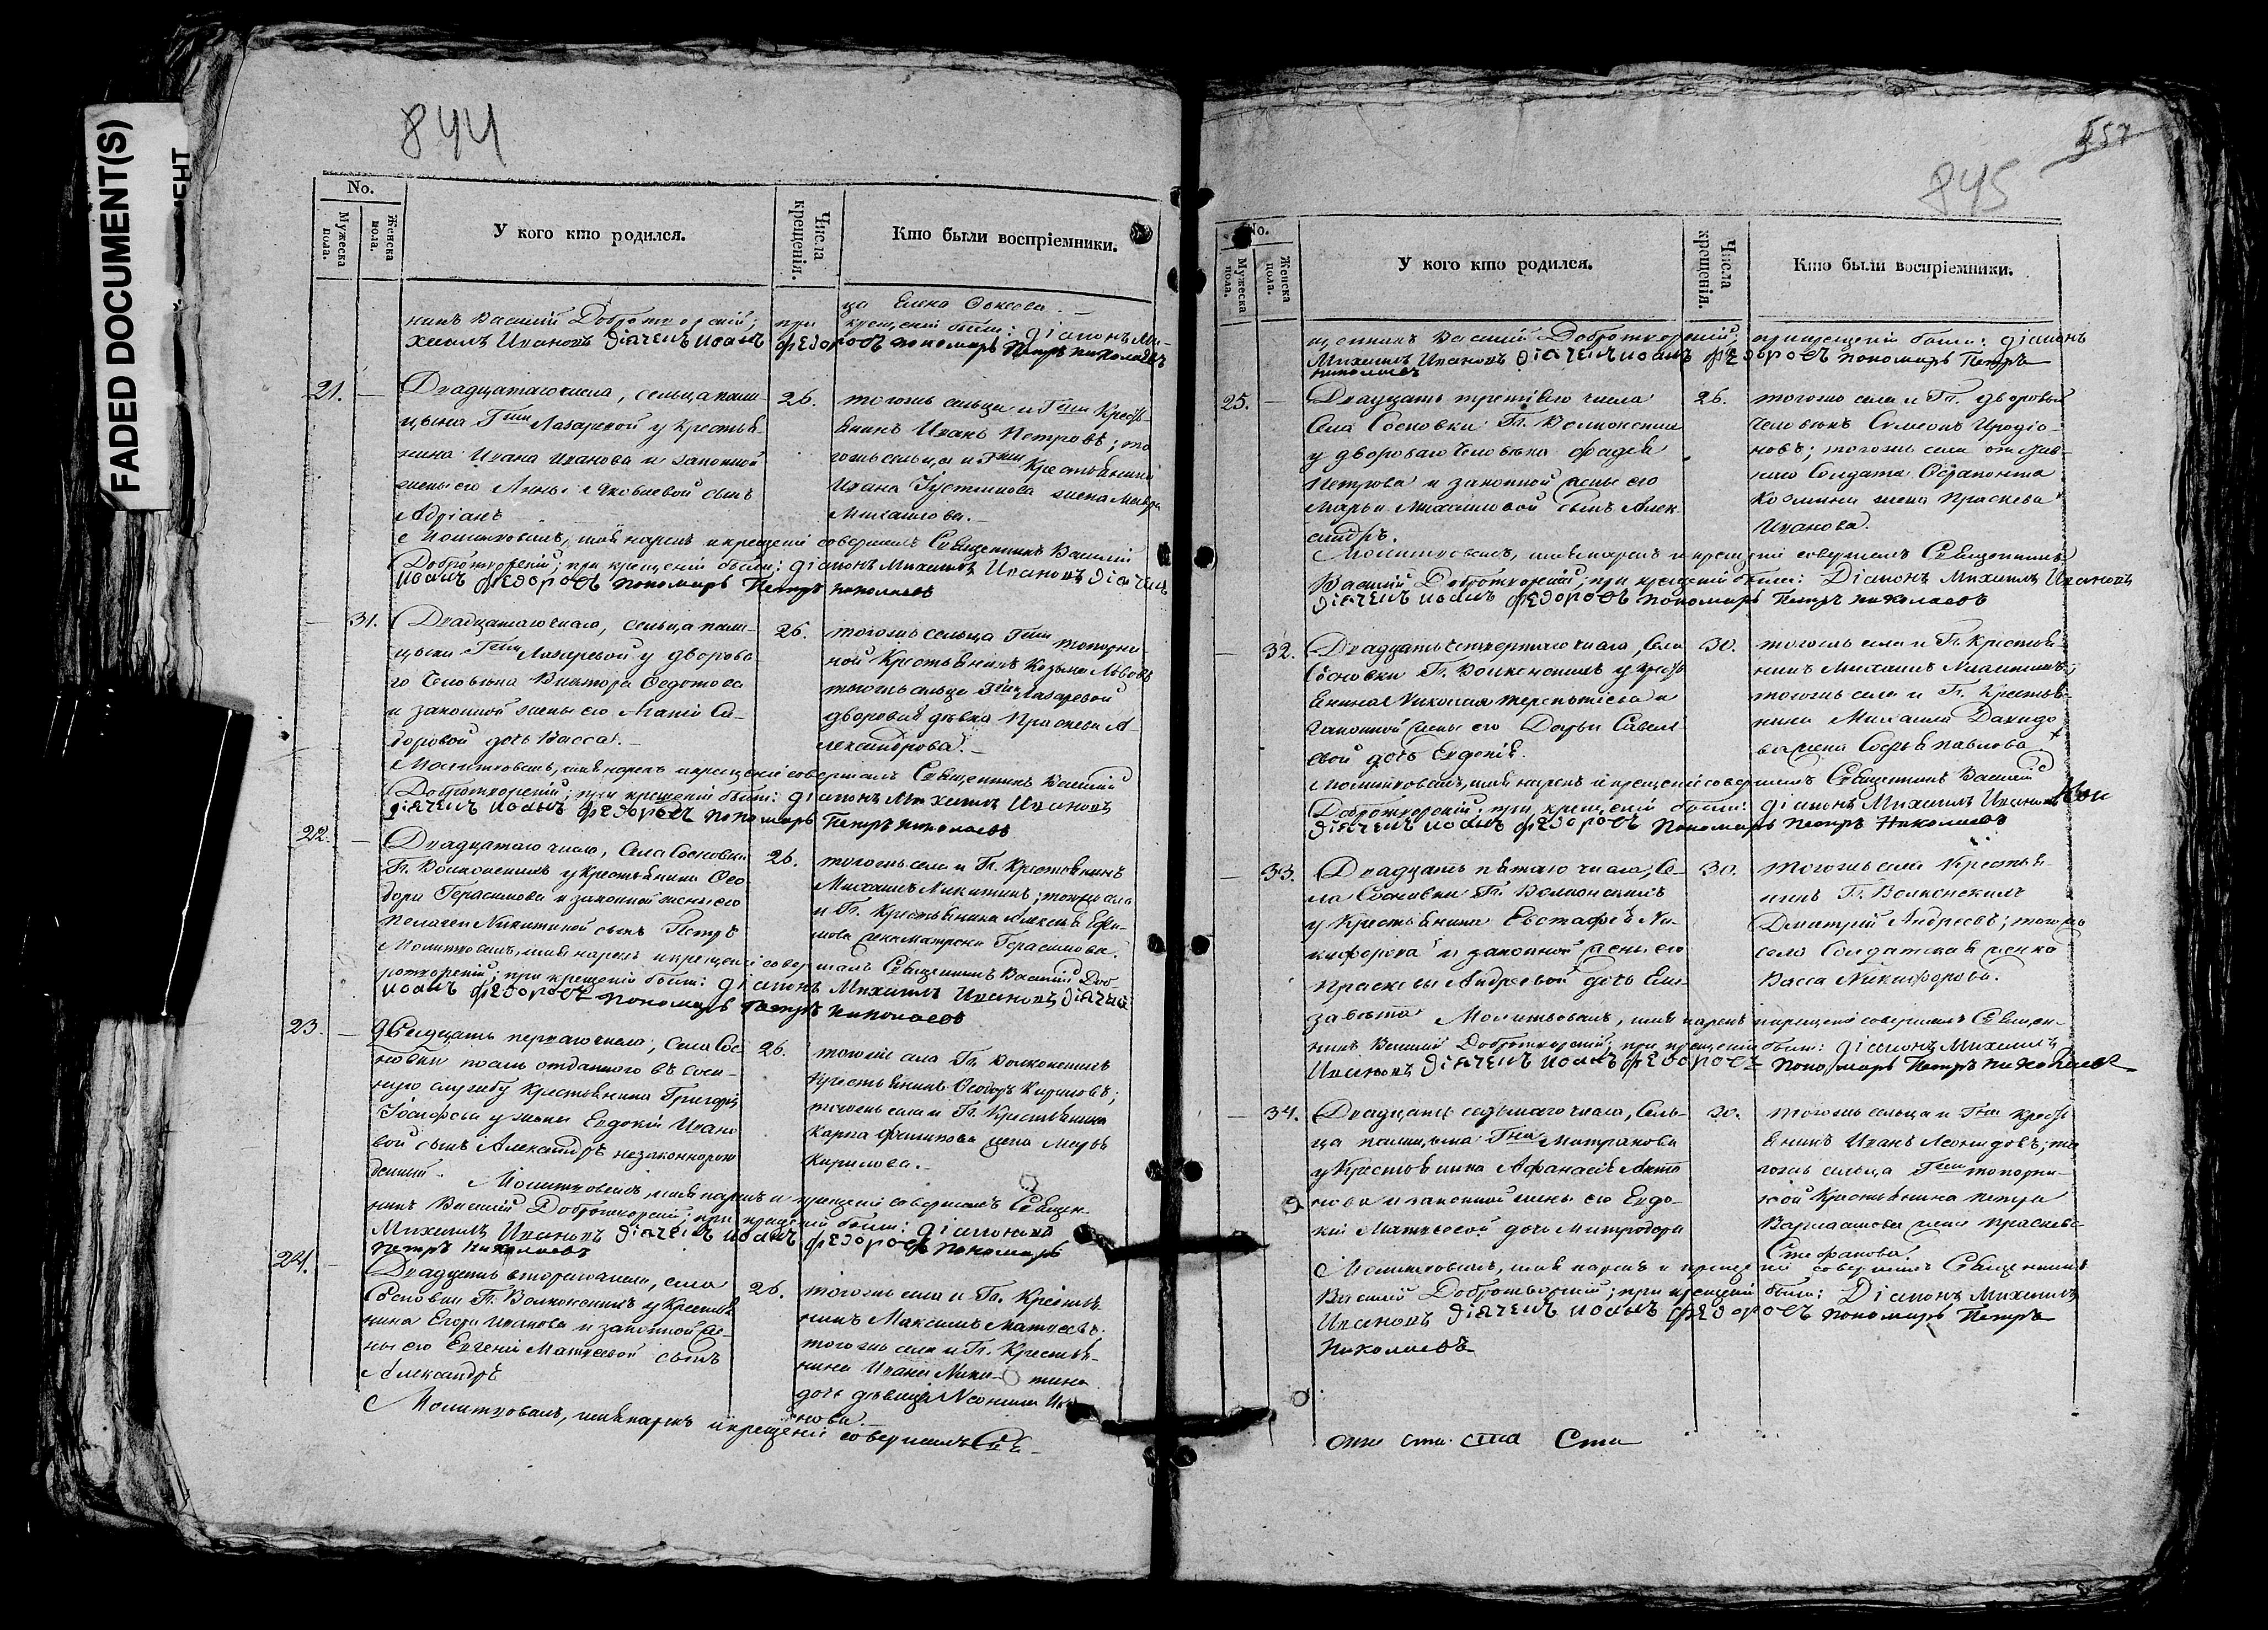 FADED DOCUMENT(S)
844
No.
Мужеска пола.
Женска пола.
У кого кто родился.
Числа крещенія.
Кто были воспріемники.
ца Елена
никъ Василій Добротворскій; при крещеніи были: діаконъ Ми-
хаилъ Ивановъ діячекъ иоанъ федоровъ пономарь Петръ николаевъ
21. — Двадцатаго числа, сельца пали-
цына Гжи Лазаревой у крестья-
нина Ивана Иванова и законной
жены его Анны Яковлевой сынъ
Адріанъ
26.
тогожъ сельца и Гжи кресть-
янинъ Иванъ Петровъ; то
гожъ сельца и Гжи Крестьянина
Ивана Іустинова жена Мавра
Михаилова. —
Молитвовалъ, имя нарекъ и крещеніе совершалъ Священникъ Василій
Добротворскій; при крещеніи были: діаконъ Михаилъ Ивановъ діячекъ
иоанъ федоровъ пономарь Петръ николаевъ
— 31. Двадцатаго числа, сельца пали-
цына Гжи Лазаревой у дворова-
го человека Виктора Ѳедотова
и законной жены его
доровой дочь Васса. —
26.
тогожъ сельца Гжи топорни-
ной Крестьянинъ Козьма Львовъ
тогожъ сельца Гжи Лазаревой
дворовая дѣвка Праскева А-
лександрова. —
Молитвовалъ, имя нарекъ и крещеніе совершалъ Священникъ Василій
Добротворскій; при крещеніи были: діаконъ Михаилъ Ивановъ
діячекъ иоанъ федоровъ пономарь Петръ николаевъ
22. — Двадцатаго числа, Села Сосновки
Гг. Волконскихъ у крестьянина Ѳео
дора Герасимова и законной жены его
Пелагеи Никитиной сынъ Петръ
26.
тогожъ села и Гг. Крестьянинъ
Михаилъ Никитинъ; тогожъ села
и Гг. Крестьянина Алексѣя Ефи-
мова жена матрена Герасимова.
Молитвовалъ, имя нарекъ и крещеніе совершалъ Священникъ Василій Доб-
ротворскій; при крещеніи были: діаконъ Михаилъ Ивановъ діячекъ
иоанъ федоровъ пономарь Петръ николаевъ
23. — Двадцать перваго числа, Села Сос
новки послѣ отданного въ воен-
ную службу крестьянина Григорія
Іосифова у жены Евдокіи Ивано
вой сынъ Александръ незаконнорож
денный. —
26.
тогожъ села Гг. Волконскихъ
Крестьянинъ Ѳеодоръ Кириловъ;
тогожъ села и Гг. Крестьянина
Карпа Филипова жена Марья
Кирилова. —
Молитвовалъ, имя нарекъ и крещеніе совершалъ Священ-
никъ Василій Добротворскій; при крещеніи были: діаконъ
Михаилъ Ивановъ діячекъ иоанъ федоровъ пономарь
Петръ николаевъ
24. — Двадцать втораго числа, села
Сосновки Гг. Волконскихъ у Крестья
нина Егора Иванова и законной же-
ны его Евгеніи Матвеевой сынъ
Александръ
26.
тогожъ села и Гг. Крестья-
нинъ Максимъ Матвеевъ.
тогожъ села и Гг. Крестья-
нина Ивана Ники-тина
дочь дѣвица Неонила Ива
нова. —
Молитвовалъ, имя нарекъ и крещеніе совершалъ Свя-
557
845
No.
Мужеска пола.
Женска пола.
У кого кто родился.
Числа крещенія.
Кто были воспріемники.
щенникъ Василій Добротворскій; при крещеніи были: діаконъ
Михаилъ Ивановъ діячекъ иоанъ федоровъ пономарь Петръ
николаевъ
25. — Двадцать третьяго числа
Села Сосновки Гг. Волконскихъ
у двороваго человѣка фадея
Петрова и законной жены его
Марьи Михаиловой сынъ Алек
сандръ.
26.
тогожъ села и Гг. дворовой
человѣкъ Симеонъ Иродіо-
новъ; тогожъ села отстав-
наго Солдата
Козмина жена Праскева
Иванова.
Молитвовалъ, имя нарекъ и крещеніе совершалъ Священникъ
Василій Добротворскій; при крещеніи были: Діаконъ Михаилъ Ивановъ
діячекъ иоанъ федоровъ пономарь Петръ николаевъ
— 32. Двадцать четвертаго числа, Села
Сосновки Гг. Волконскихъ у кресть
янина Николая терентьева и
законной жены его Дарьи Савель
евой дочь Евдокія.
30.
тогожъ села и Гг. Крестья-
нинъ Михаилъ Никитинъ;
тогожъ села и Гг. Крестья-
нина Михаила Давидо
ва жена Софья павлова.
Молитвовалъ, имя нарекъ и крещеніе совершалъ Священникъ Василій
Добротворскій; при крещеніи были: діаконъ Михаилъ Ивановъ
діячекъ иоанъ федоровъ пономарь Петръ Николаевъ
— 33. Двадцать пятаго числа, Се-
ла Сосновки Гг. Волконскихъ
у крестьянина Евстафія Ни-
кифорова и законной жены его
Праскевы Андреевой дочь Ели-
завета
30.
тогожъ села Крестья-
нинъ Гг. Волконскихъ
Дмитрій Андреевъ; тогожъ
села Солдатская женка
Васса Никифорова.
Молитвовалъ, имя нарекъ и крещеніе совершалъ Священ-
никъ Василій Добротворскій; при крещеніи были: діаконъ Михаилъ
Ивановъ діячекъ иоанъ федоровъ пономарь Петръ николаевъ
— 34. Двадцать седьмаго числа, Сель-
ца палицына Гжи Митрхановы
у Крестьянина Афанасія Анто
нова и законной жены его Евдо-
кіи Матвеевой дочь Митродора
30.
тогожъ сельца и Гжи кресть
янинъ Иванъ Леонидовъ; то
гожъ сельца Гжи топорни-
ной Крестьянина петра
Варлаамова жена праскева
Стефанова.
Молитвовалъ, имя нарекъ и крещеніе совершалъ Священникъ
Василій Добротворскій; при крещеніи были: Діаконъ Михаилъ
Ивановъ діячекъ иоанъ федоровъ пономарь Петръ
Николаевъ